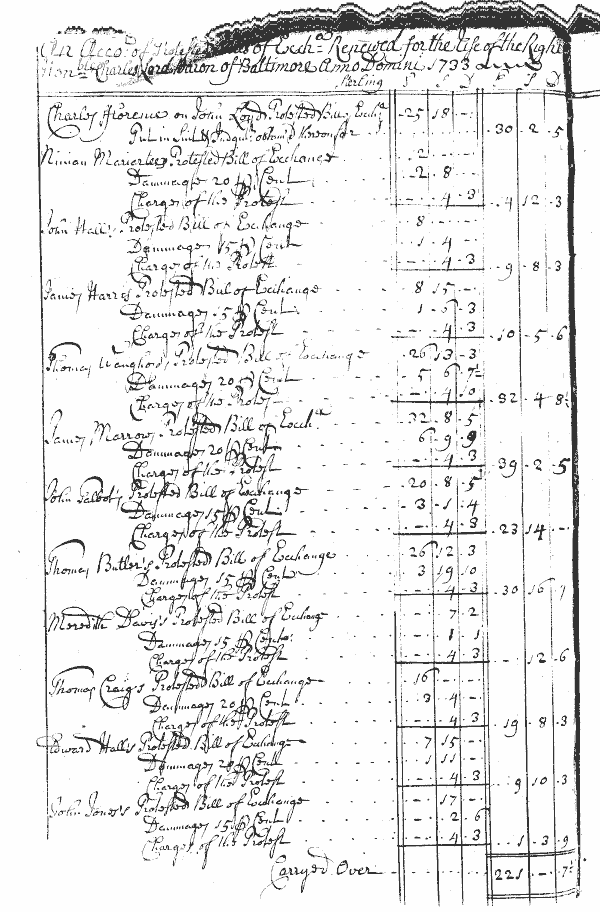 An Acco:t of Protested Bills of Exch:a Renewed for the Use of the Right
Hon:ble Charles Lord Baron of Baltimore Anno Domini 1733
Sterling £ S D £ S D
Charles Florence on John Protested Bill Exch:a 25 18 -
Put in Suit & Judgm:t obtain'd thereon for 30 2 5
Ninian Protested Bill of Exchange 2 - -
Dammages 20 ℔ Cent - 8 -
Charges of the Protest - 4 3 4 12 3
John Hall's Protested Bill of Exchange 8 - -
Dammages 15 ℔ Cent 1 4 -
Charges of the Protest - 4 3 9 8 3
James Harris Protested Bill of Exchange 8 15 -
Dammages 15 ℔ Cent 1 6 3
Charges of the Protest - 4 3 10 5 6
Thomas Protested Bill of Exchange 26 13 3
Dammages 20 ℔ Cent 5 6 7½
Charges of the Protest - 4 10 32 4 8½
James Marrow's Protested Bill of Exch:a 32 8 5
Dammages 20 ℔ Cent 6 9 9
Charges of the Protest - 4 3 39 2 5
John Talbot's Protested Bill of Exchange 20 8 5
Dammages 15 ℔ Cent 3 1 4
Charges of the Protest - 4 3 23 14 -
Thomas Butler's Protested Bill of Exchange 26 12 3
Dammages 15 ℔ Cent 3 19 10
Charges of the Protest - 4 3 30 16 7
Meredith Davy's Protested Bill of Exchange - 7 2
Dammages 15 ℔ Cent - 1 1
Charges of the Protest - 4 3 - 12 6
Thomas Craig's Protested Bill of Exchange 16 - -
Dammages 20 ℔ Cent 3 4 -
Charges of the Protest - 4 3 19 8 3
Edward Hall's Protested Bill of Exchange 7 15 -
Dammages 20 ℔ Cent 1 11 -
Charges of the Protest - 4 3 9 10 3
John Jones's Protested Bill of Exchange - 17 -
Dammages 15 ℔ Cent - 2 6
Charges of the Protest - 4 3 1 3 9
Carryed Over 221 - 7½